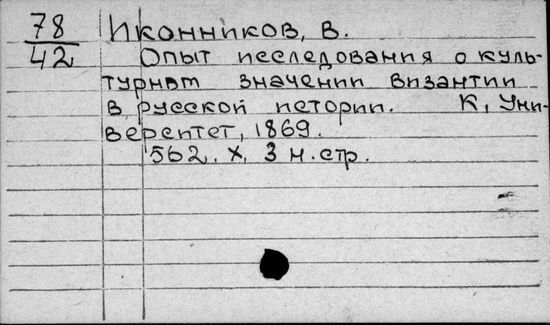 78 Иконников, В.
42 Опыт исследования о куль-
турном значении Византии
в русской истории. К, Уни-
верситет, 1869.
562. X, 3 н. стр.